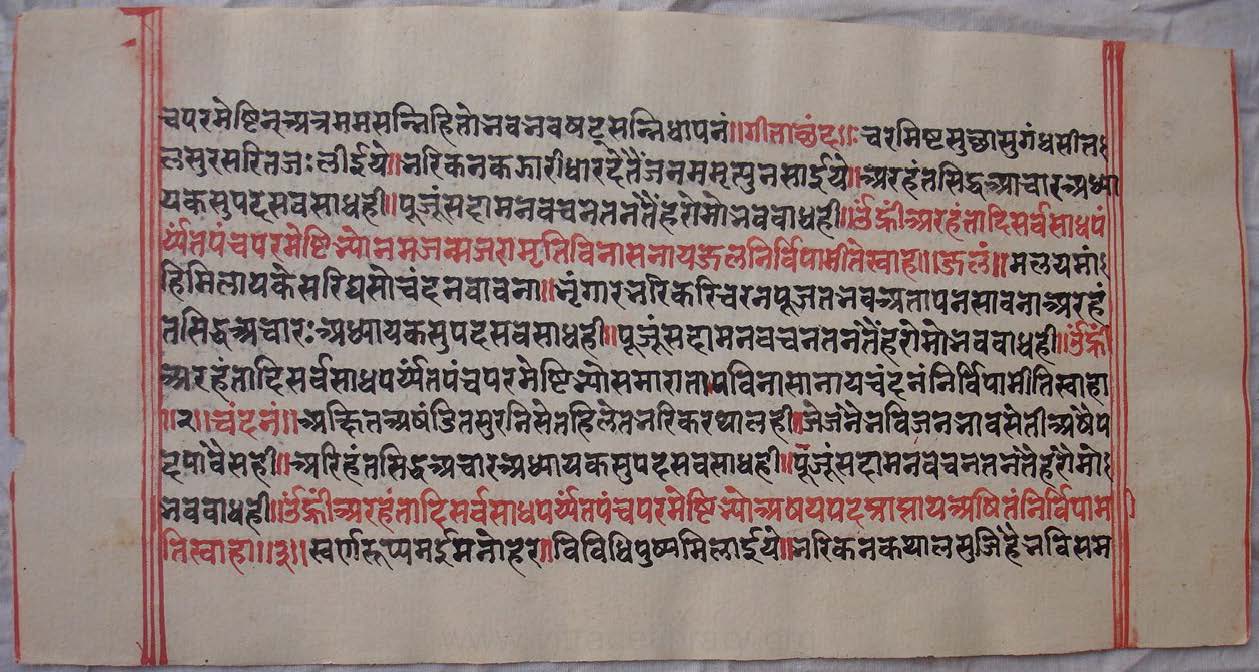 चपरमेष्टिन्अत्रममसन्निहितोभवभवबषट्सन्निधापनं॥गीताछंद॥: चरमिष्टसुछासुगंधसीत
लसुरसरितजःलीईये॥भरिकनकझारीधारदेतैंजनममृत्युनसाईये॥अरहंतसिद्धआचारअध्या
यकसुपदसवसाधही॥पूजुंसदामनवचनतनतैंहरोमोभववाधही॥ॐह्रींअरहंतादिसर्वसाधपं
र्य्यंतपंचपरमेष्टिभ्योनमजन्मजरामृतिविनासनायजलनिर्विपामीतिस्वाहा॥जलं॥मलयमां
हिमिलायकेसरिघसोचंदनवावना॥भृंगारभरिकरिचरनपूजतभवअतापनसावनाअरहं
तसिद्धअचारःअध्यायकसुपदसवसाधही॥पूजुंसदामनवचनतनतैंहरोमोभववाधही॥ॐह्रीं
अरहंतादिसर्वसाधपर्य्यंतपंचपरमेष्टिभ्योसमारातापविनासानायचंदनंनिर्विपामीतिस्वाहा
॥२॥चंदनं॥अछितअषंडितसुरभिसेतहिलेतभरिकरथालही॥जेजेनैनविजनभावसेतीअषैप
दपावैसही॥अरिहंतसिद्धअचारअध्यायकसुपदसवसाधही॥पूजुंसदामनवचनतनतैंहरोमो
भववाधही॥ॐह्रींअरहंतादिसर्वसाधपर्य्यंतपंचपरमेष्टिभ्योअषयपदप्राप्तायअषितंनिर्विपामी
तिस्वाहा॥३॥स्वर्णरूप्यमईमनोहर॥विविधिपुष्पमिलाईये॥भरिकनकथालसुजिहैभविसम